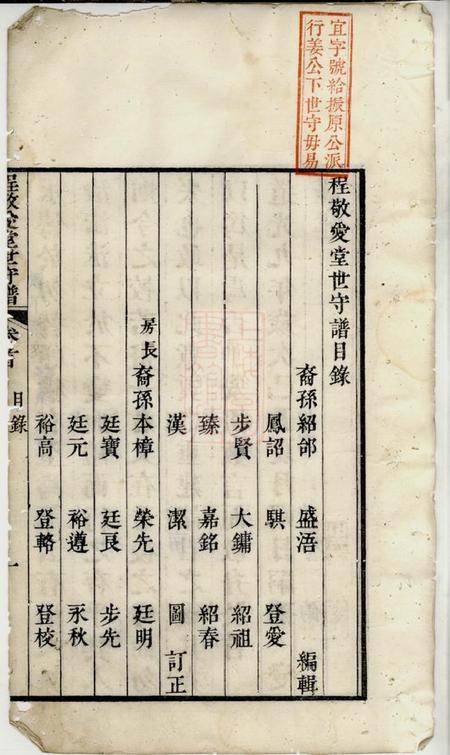 宜字號給振原公派
行姜公下世守毋易
程敬愛堂世守譜目錄
裔孫紹邰 盛浯 編輯
鳳詔 騏 登愛
步賢 大鏞 紹祖
臻 嘉銘 紹春
漢 潔 圖 訂正
房長裔孫本樟 榮先 廷明
廷寶 廷良 步先
廷元 裕遵 永秋
裕高 登輅 登梭
程敬愛堂世守譜 卷首 目錄 一